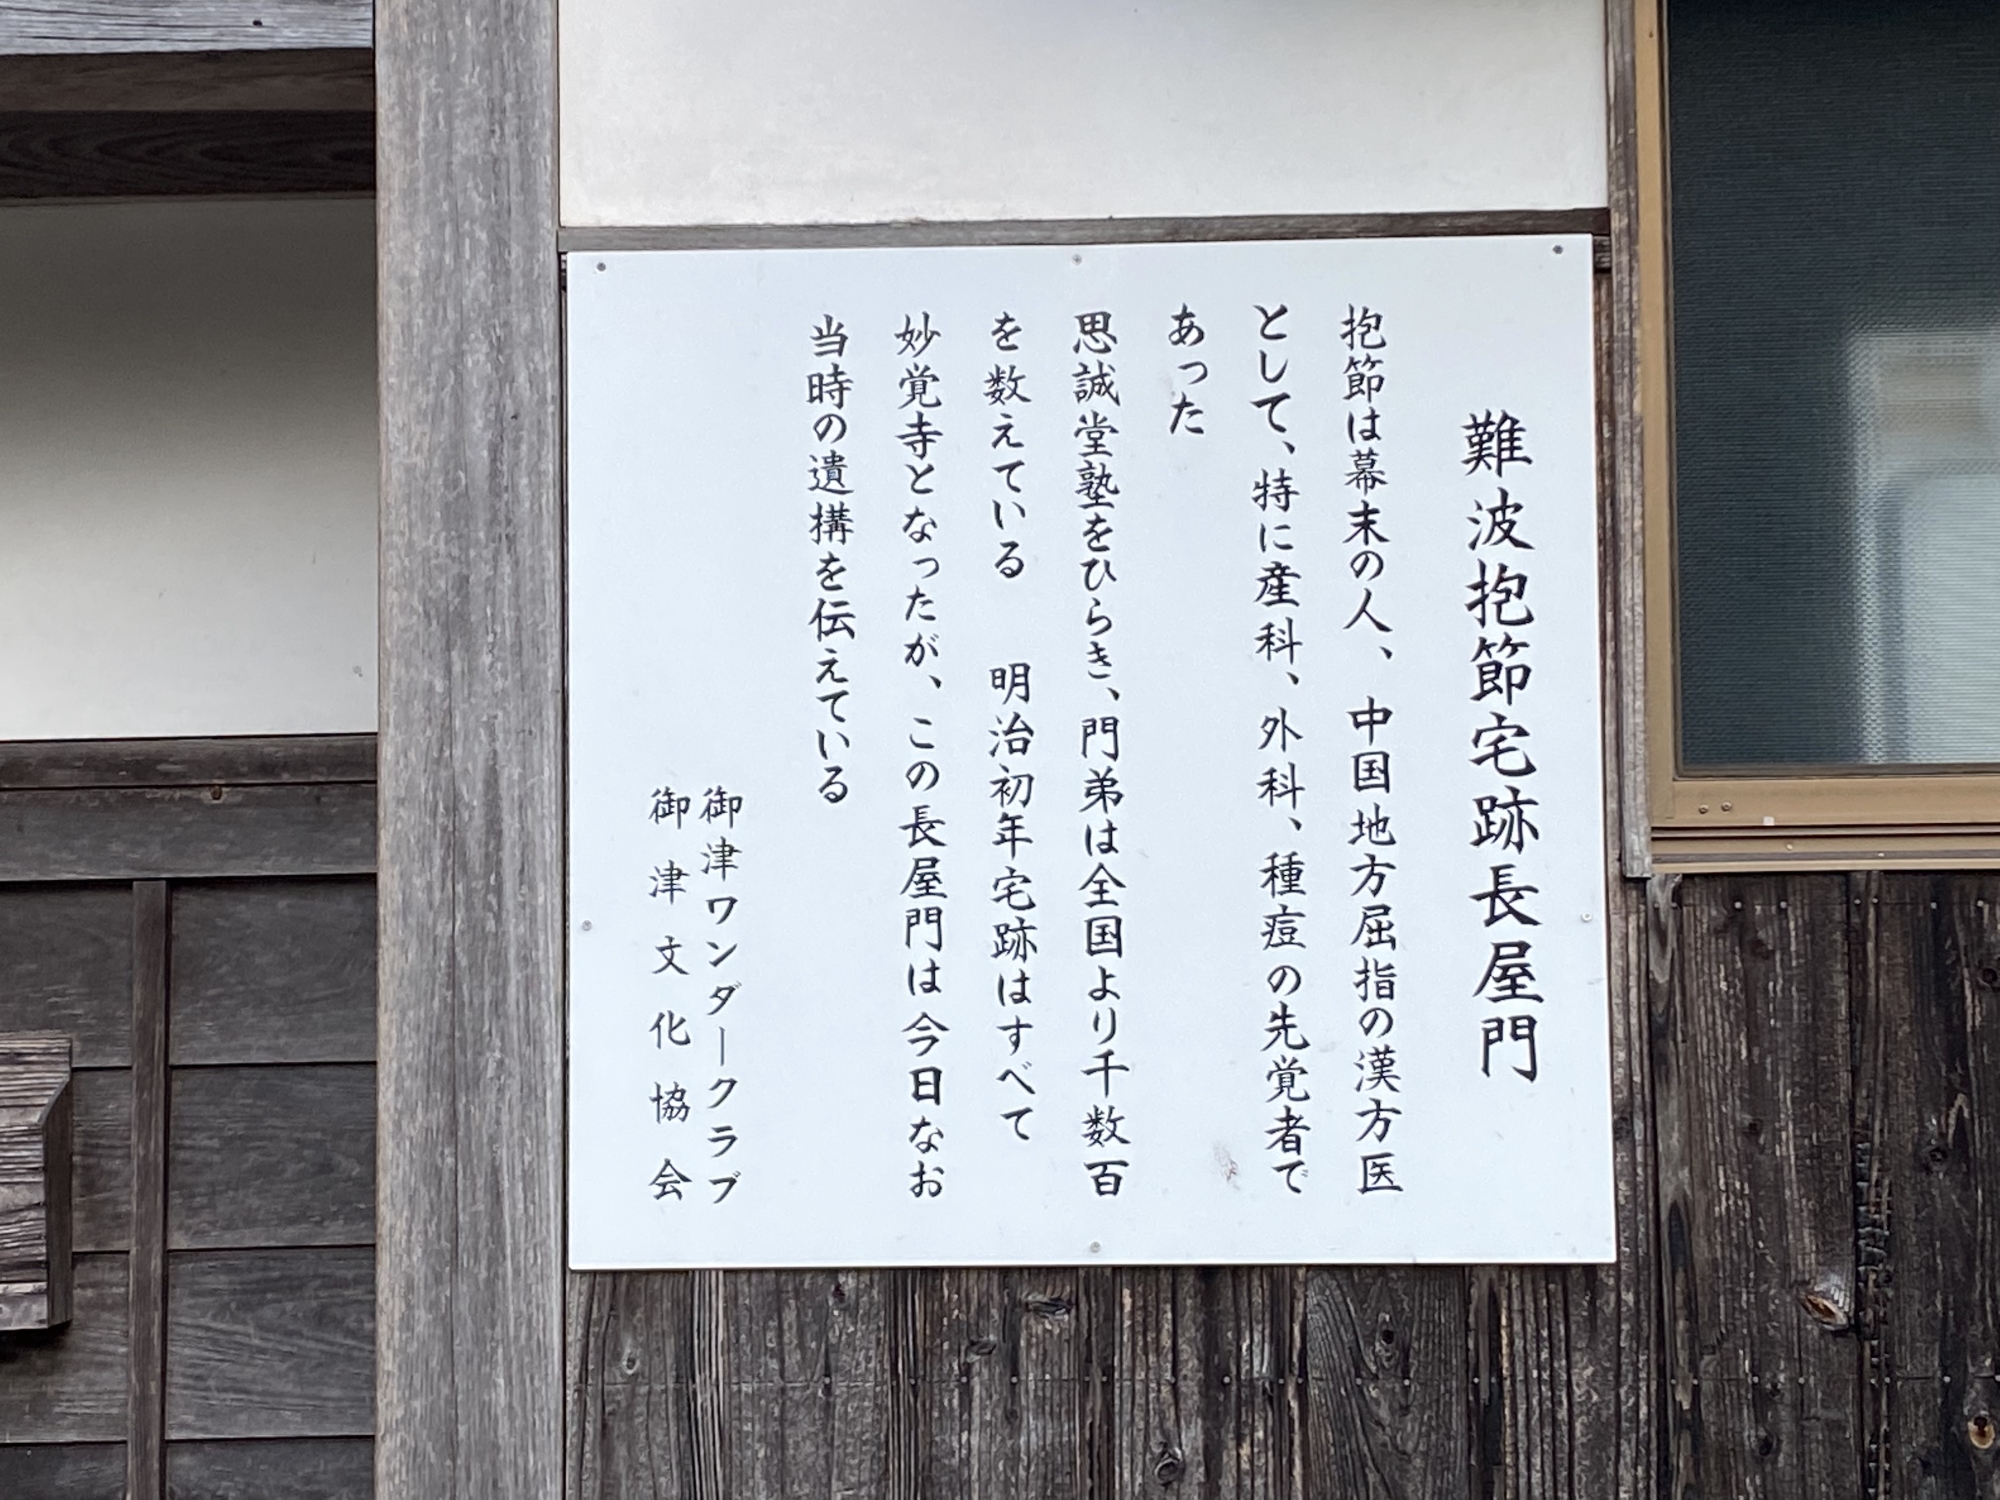 難波抱節宅跡長屋門
抱節は幕末の人、中国地方屈指の漢方医
として、特に産科、外科、種痘の先覚者で
あった
思誠堂塾をひらき、門弟は全国より千数百
を数えている　明治初年宅跡はすべて
妙覚寺となったが、この長屋門は今日なお
当時の遺構を伝えている
御津ワンダークラブ
御津文化協会